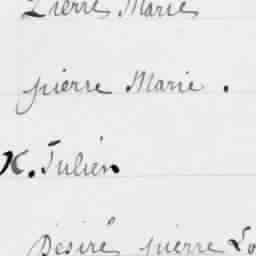 Pierre Marie
pierre Marie .
X. Julien
Désiré pierre Lo